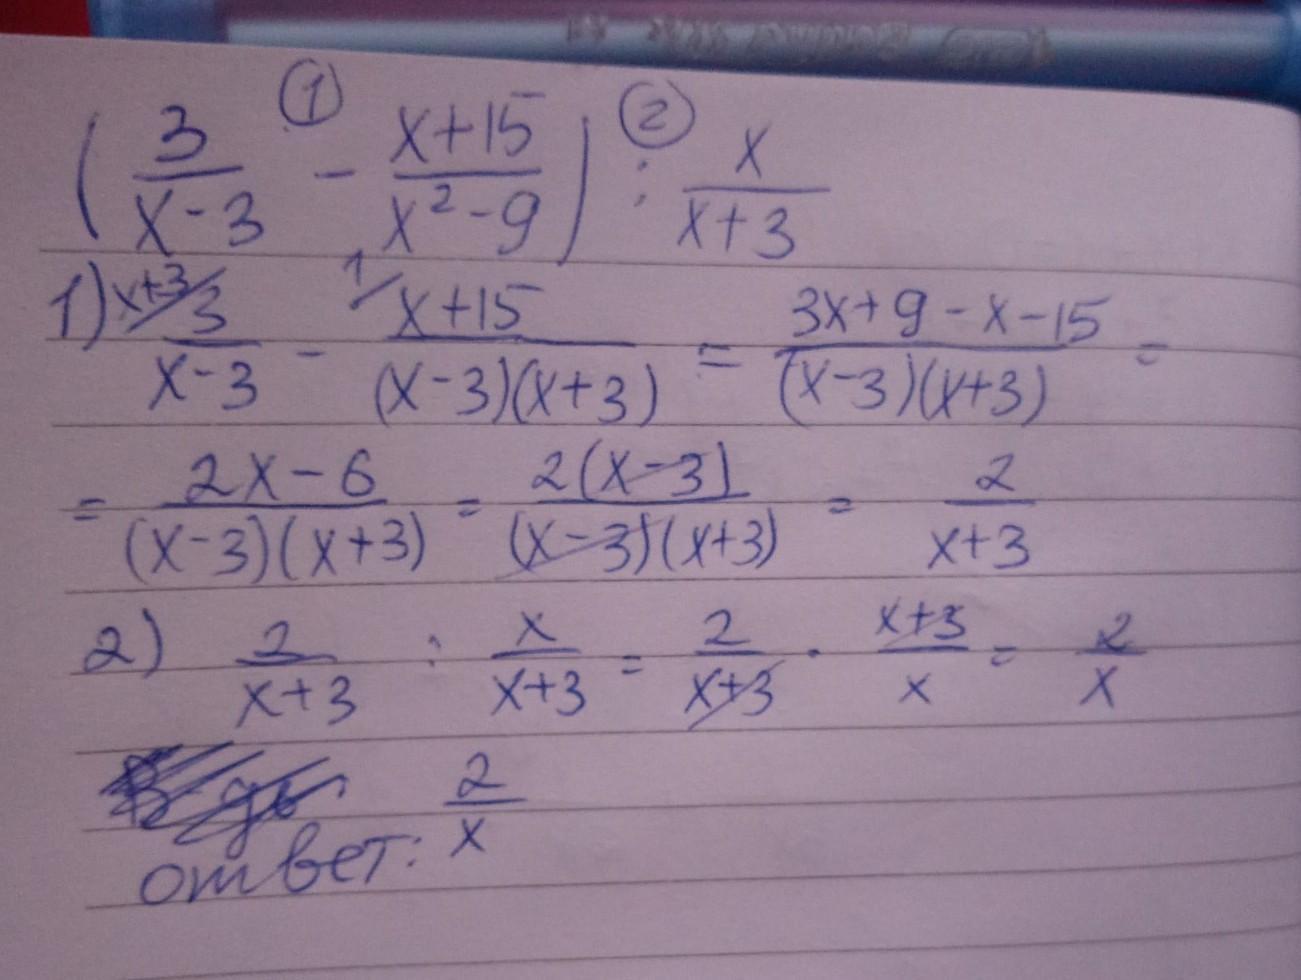 ( 3/(x-3) ① - (x+15)/(x²-9) ) ② : x/(x+3)
1) x+3/ 3/(x-3) - 1/ (x+15)/((x-3)(x+3)) = (3x+9-x-15)/((x-3)(x+3)) =
= (2x-6)/((x-3)(x+3)) = 2(x-3)/((x-3)(x+3)) = 2/(x+3)
2) 2/(x+3) : x/(x+3) = 2/(x+3) · (x+3)/x = 2/x
ответ: 2/x